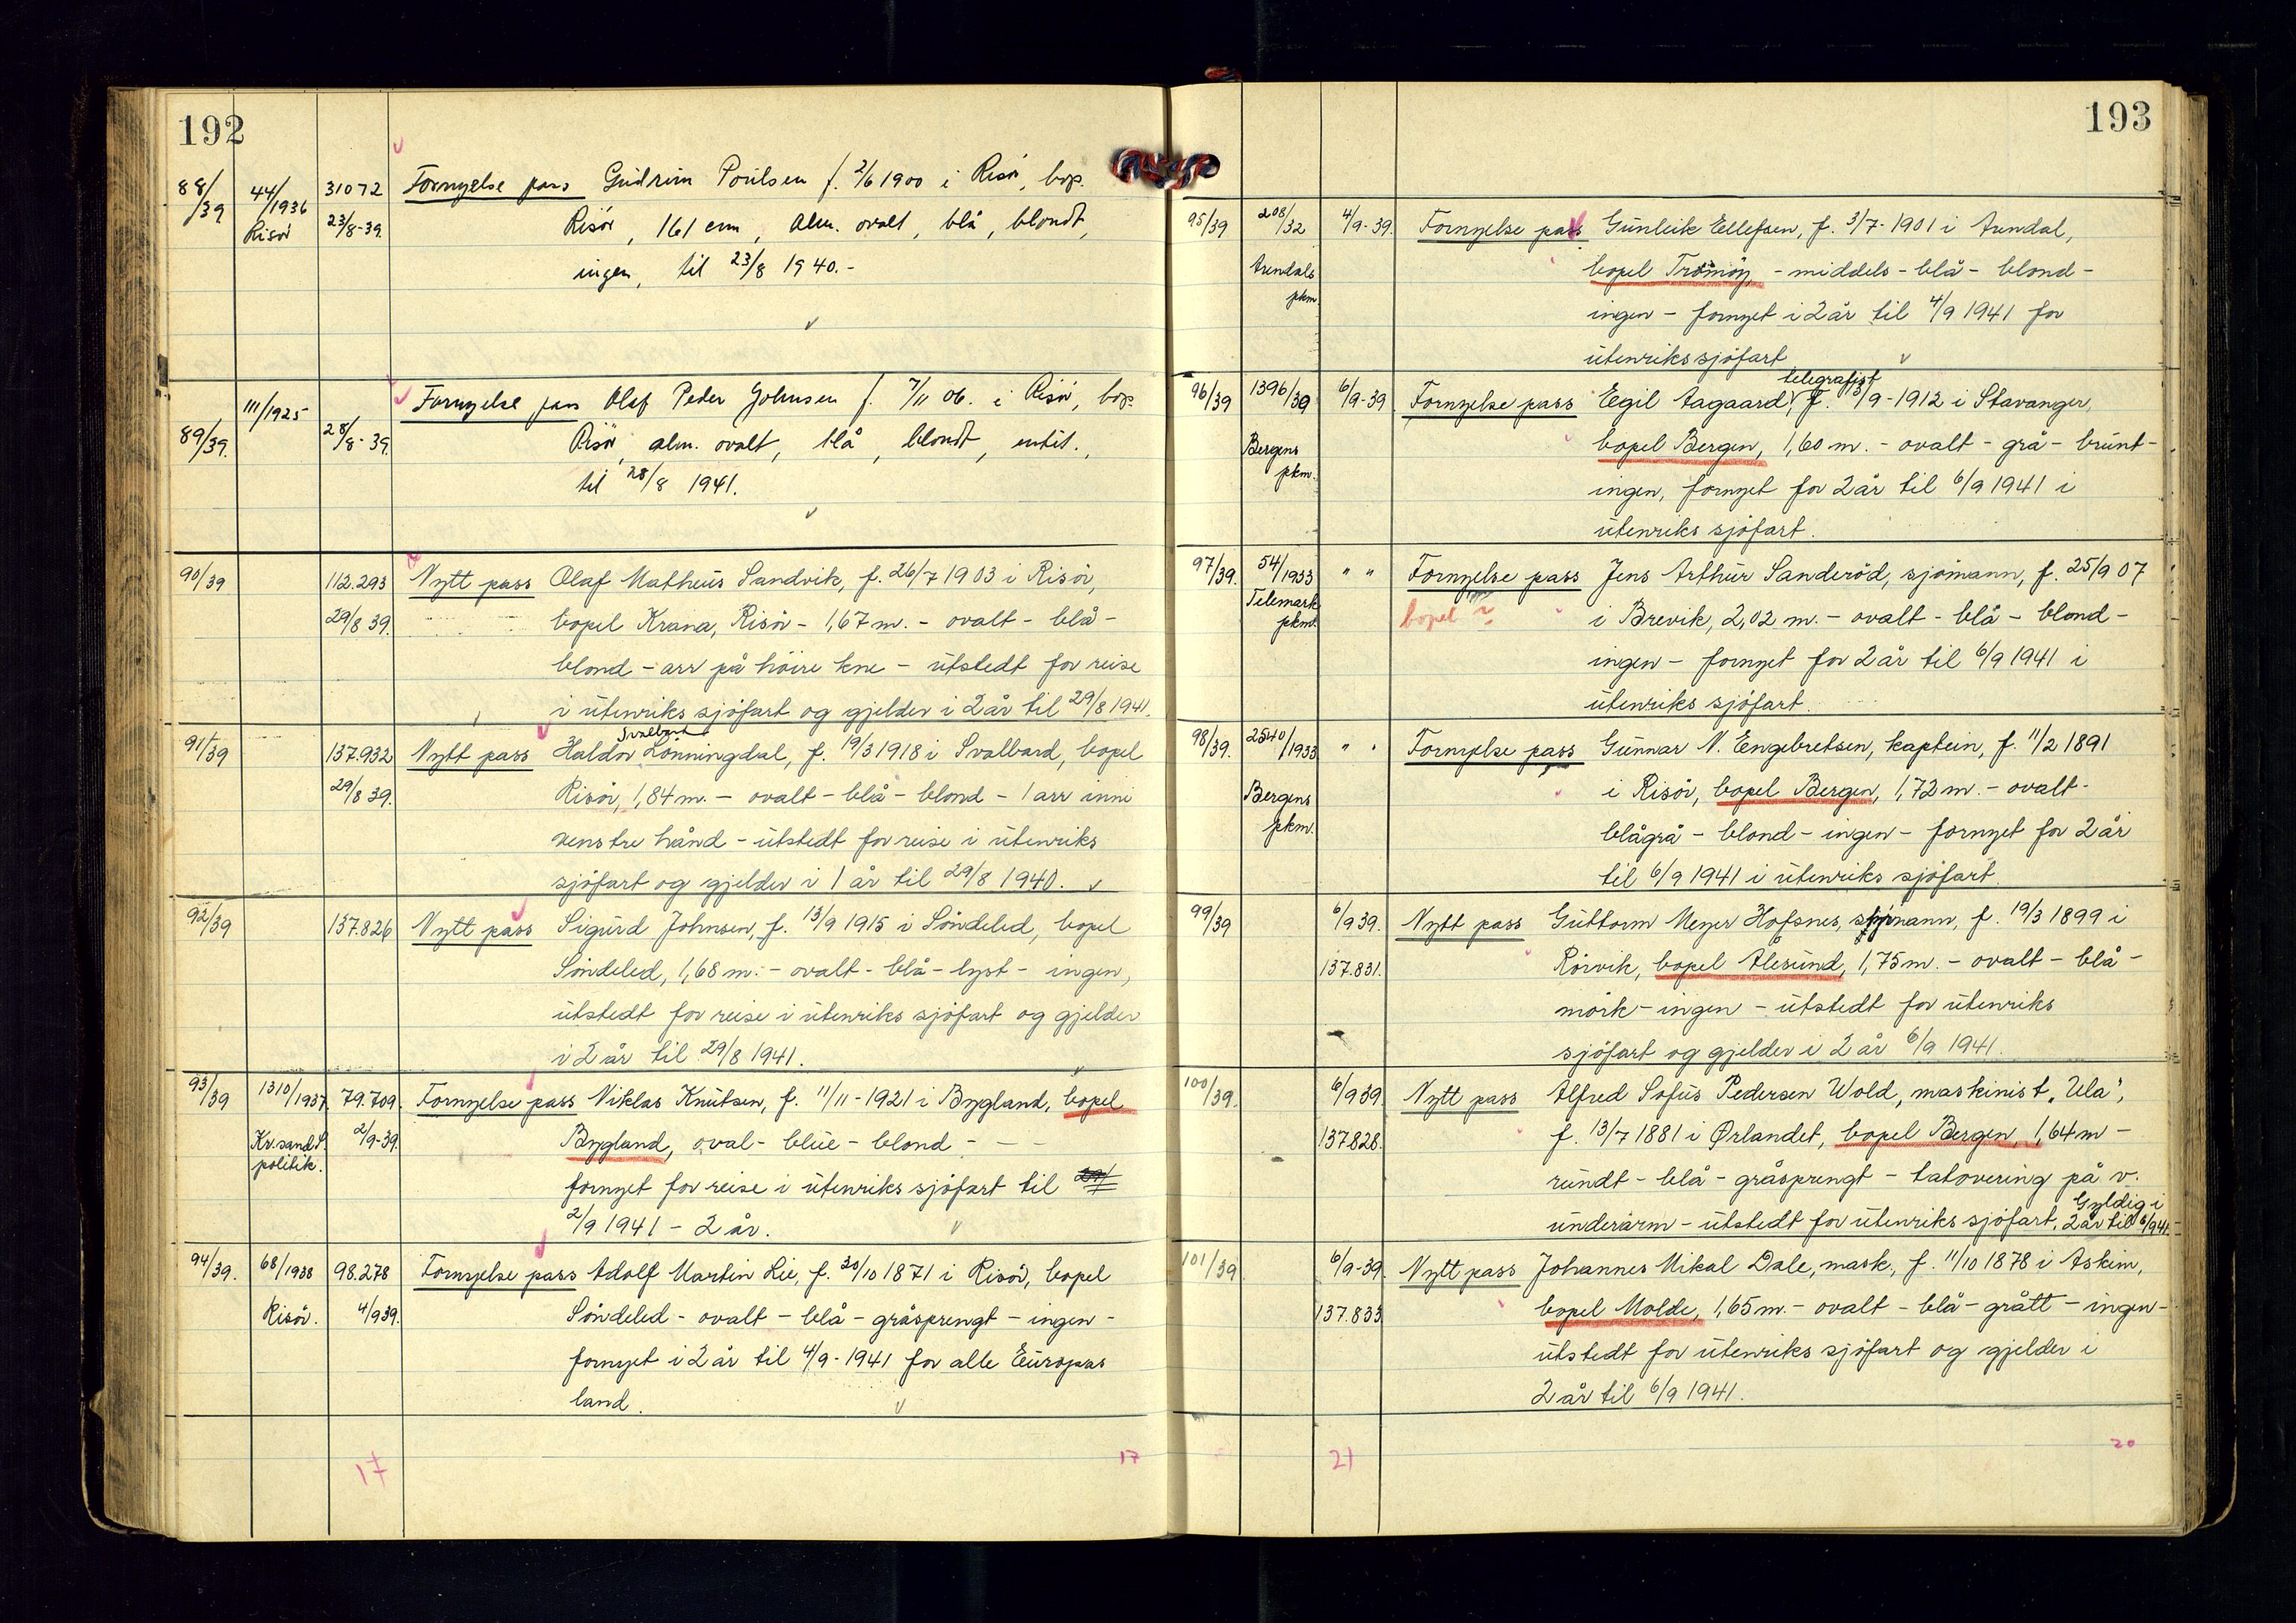 192
88/39 44/1936 Risör 31072 23/8-39. Fornyelse pass Gudrun Poulsen f. 2/6 1900 i Risör, bop.
Risör, 161 cm, alm. ovalt, blå, blondt,
ingen, til 23/8 1940.-
89/39. 111/1925 28/8-39. Fornyelse pass Olaf Peder Johnsen f. 7/11 06. i Risör, bop.
Risör, alm. ovalt, blå, blondt, intet.,
til 28/8 1941.
90/39 112.293 29/8 39. Nytt pass Olaf Matheus Sandvik, f. 26/7 1903 i Risör,
bopel Krana, Risör - 1,67 m. - ovalt - blå -
blond - arr på höire kne - utstedt for reise
i utenriks sjöfart og gjelder i 2 år til 29/8 1941.
Svalbard
91/39 137.932 29/8 39. Nytt pass Haldor Lönningdal, f. 19/3 1918 i Svalbard, bopel
Risör, 1,84 m. - ovalt - blå - blond - 1 arr inni
venstre hånd - utstedt for reise i utenriks
sjöfart og gjelder i 1 år til 29/8 1940.
92/39 137.826 Nytt pass Sigurd Johnsen, f. 13/9 1915 i Söndeled, bopel
Söndeled, 1,68 m. - ovalt - blå - lyst - ingen,
utstedt for reise i utenriks sjöfart og gjelder
i 2 år til 29/8 1941.
93/39 1310/1937 Kr.sand S. politik. 79.709. 2/9-39. Fornyelse pass Niklas Knutsen, f. 11/11-1921 i Bygland, bopel
Bygland, oval - blue - blond - — —
fornyet for reise i utenriks sjöfart til 29/
2/9 1941 - 2 år.
94/39. 68/1938 Risör. 98.278 4/9 39. Fornyelse pass Adolf Martin Lie, f. 20/10 1871 i Risör, bopel
Söndeled - ovalt - blå - gråsprengt - ingen -
fornyet i 2 år til 4/9-1941 for alle Europas
land.
17 17
193
95/39 208/32 Arendals pkm. 4/9-39. Fornyelse pass Gunleik Ellefsen, f. 3/7-1901 i Arendal,
bopel Tromöy, - middels - blå - blond -
ingen - fornyet i 2 år til 4/9 1941 for
utenrikssjöfart
telegrafist
96/39 1396/39 Bergens pkm. 6/9-39 Fornyelse pass Egil Aagaard, f. 13/9-1912 i Stavanger,
bopel Bergen, 1,60 m. - ovalt - grå - brunt -
ingen, fornyet for 2 år til 6/9 1941 i
utenriks sjöfart.
97/39. 54/1933 Telemark pkm. " " Fornyelse pass Jens Arthur Sanderöd, sjömann, f. 25/9 07
bopel ? i Brevik, 2,02 m. - ovalt - blå - blond -
ingen - fornyet for 2 år til 6/9 1941 i
utenriks sjöfart.
98/39. 2540/1933 Bergens pkm. " " Fornyelse pass Gunnar N. Engebretsen, kaptein, f. 11/2 1891
i Risör, bopel Bergen, 1,72 m. - ovalt -
blågrå - blond - ingen - fornyet for 2 år
til 6/9 1941 i utenriks sjöfart.
99/39 6/9 39. 137.831. Nytt pass Guttorm Meyer Hofsnes, styrmann, f. 19/3 1899 i
Rörvik, bopel Ålesund, 1,75 m. - ovalt - blå -
mörk - ingen - utstedt for utenriks
sjöfart og gjelder i 2 år 6/9 1941.
100/39. 6/9 39 137.828. Nytt pass Alfred Sofus Pedersen Wold, maskinist "Ula",
f. 13/7 1881 i Ørlandet, bopel Bergen, 1,64 m -
rundt - blå - gråsprengt - tatovering på v.
underarm - utstedt for utenriks sjöfart. Gyldig i 2 år til 6/9 41.
101/39 6/9-39. 137.833 Nytt pass Johannes Mikal Dale, mask., f. 11/10 1878 i Askim,
bopel Molde, 1,65 m. - ovalt - blå - grått - ingen -
utstedt for utenriks sjöfart og gjelder i
2 år til 6/9 1941.
21 20